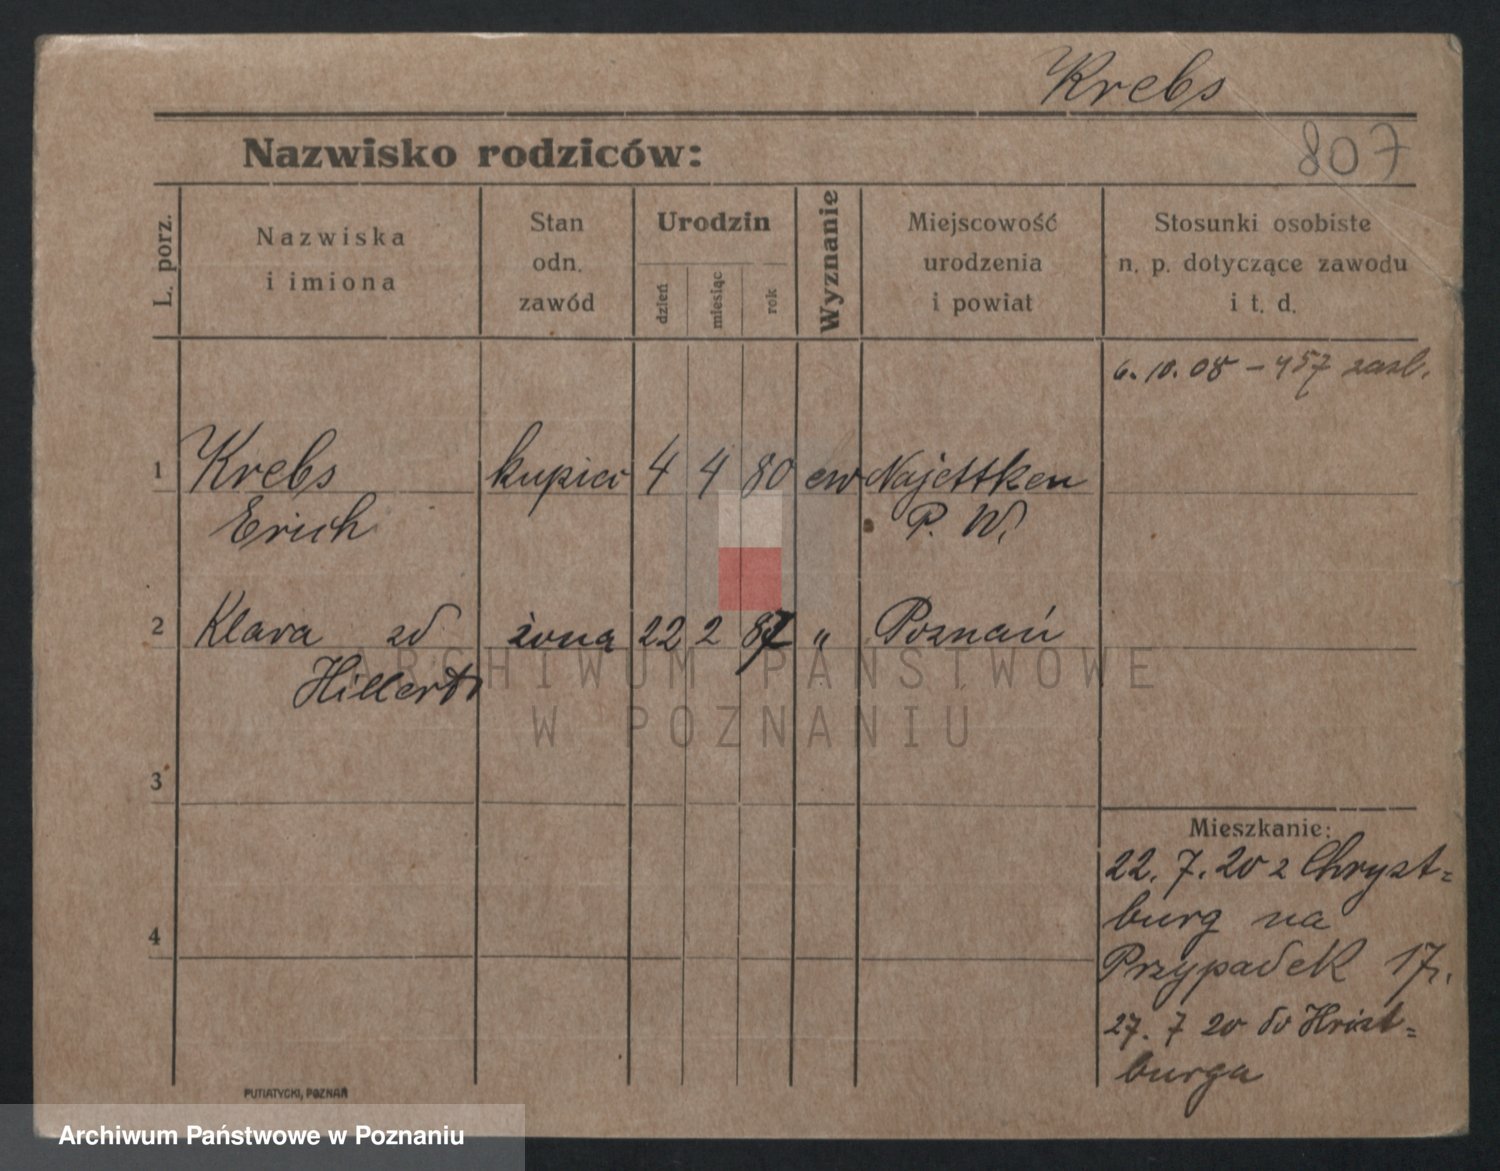 Krebs
807
Nazwisko rodziców:
L. porz.
Nazwiska
i imiona
Stan
odn.
zawód
Urodzin
dzień
miesiąc
rok
Wyznanie
Miejscowość
urodzenia
i powiat
Stosunki osobiste
n. p. dotyczące zawodu
i t. d.
6. 10. 08 - 457 zasl.
1 Krebs kupiec 4 4 80 ew Najettken
Erich P. W.
2 Klara zd żona 22 2 87 " Poznań
Hillert
3
4
Mieszkanie:
22. 7. 20 z Chryst=
burg na
Przypadek 17.
27. 7 20 do Hrist=
burga
PUTIATYCKI, POZNAŃ
ARCHIWUM PAŃSTWOWE
W POZNANIU
Archiwum Państwowe w Poznaniu